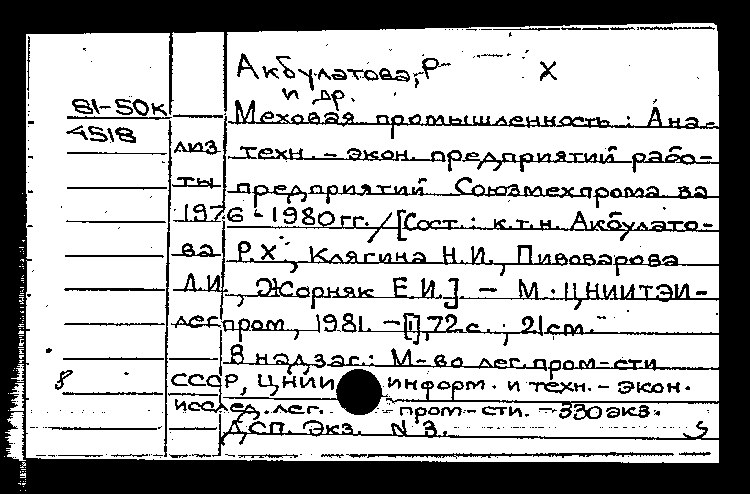 Акбулатова, Р Х
и др.
81-50к Меховая промышленность : Ана-
4518
лиз техн. - экон. предприятий рабо-
ты предприятий Союзмехпрома за
1976 - 1980 гг. / [Сост. : к.т.н. Акбулато-
ва Р.Х., Клягина Н.И., Пивоварова
Л.И., Жорняк Е.И.]. - М. : ЦНИИТЭИ-
легпром, 1981. - [1], 72 с. ; 21 см.
В надзаг.: М-во лег. пром-сти
СССР, ЦНИИ информ. и техн. - экон.
исслед. лег. пром-сти. - 330 экз.
ДСП. Экз. N 3.